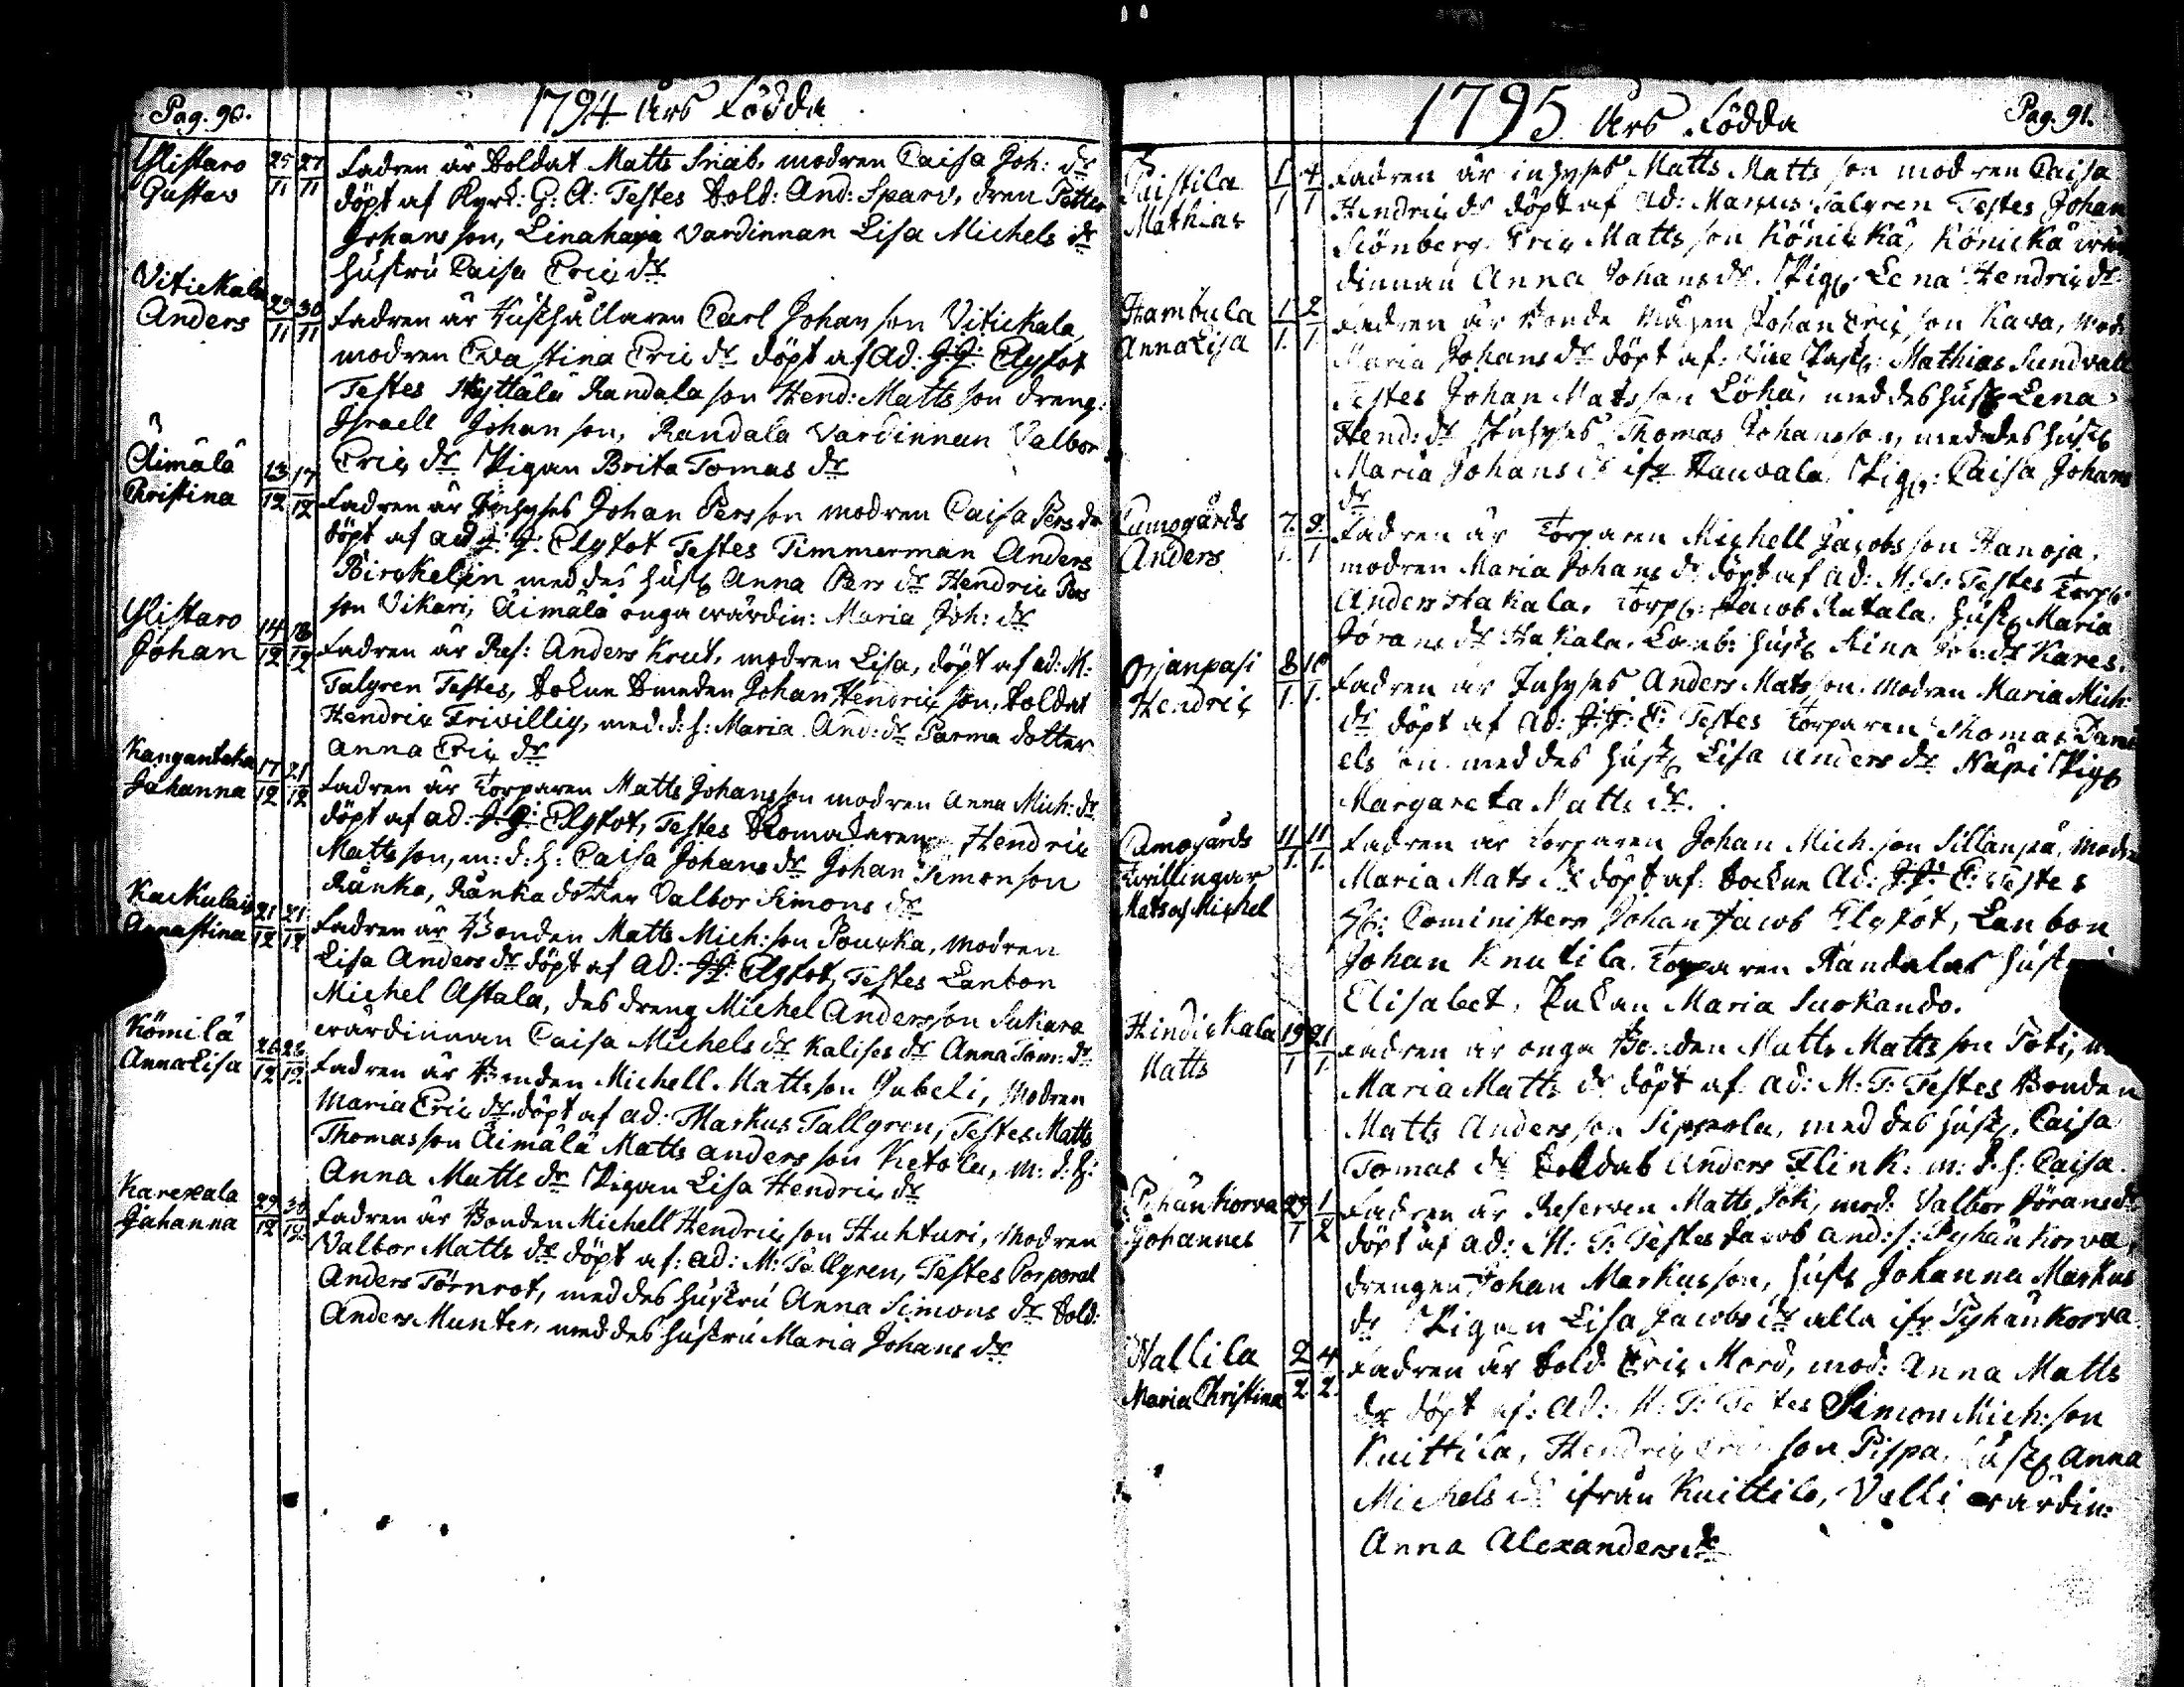 Pag. 90.
1794 Års Födda
Ylistaro 25/11 27/11 Fadren är Soldat Matts Snab, modren Caisa Joh: dr
Gustav döpt af Kyrk: G: A: Testes Sold: And: Sparv, dren Petter
Johansson, Linahaja värdinnan Lisa Michels dr
hustru Caisa Eric dr
Vitickala 29/11 30/11
Anders Fadren är Hushållaren Carl Johansson Vitickala
modren Eva Stina Eric dr döpt af Ad: J: J: Elgfot
Testes Hyttälä Randala son Hend: Matts son dreng:
Israell Johansson, Randala värdinnan Valbor
Äimälä 13/12 17/12 Eric dr Pigan Brita Tomas dr
Christina Fadren är Inhyses Johan Persson modren Caisa Pers dr
döpt af ad J: J: Elgfot Testes Timmerman Anders
Birckelin med des hust Anna Pers dr Hendric Pers
son Vikari, Äimälä unga wärdin: Maria Joh: dr
Ylistaro 14/12 18/12
Johan Fadren är Res: Anders Krut, modren Lisa, döpt af ad: M:
Talgren Testes, Sockne Smeden Johan Hendricsson, Soldat
Hendric Frivillig, med. d: h: Maria And: dr Parma dotter
Anna Eric dr
Kangantaka 17/12 21/12
Johanna Fadren är Torparen Matts Johansson modren Anna Mich: dr
döpt af ad: J: J: Elgfot, Testes Skomakaren Hendric
Mattsson, m: d: h: Caisa Johans dr Johan Simonson
Ränkä, Ränkä dotter Valbor Simons dr
Kackulais 21/12 21/12
Annastina Fadren är Bonden Matts Mich: son Pouckа, modren
Lisa Anders dr döpt af Ad: J: J: Elgfot, Testes Lanbon
Michel Astala, des dreng Michel Andersson Sukara
wärdinnan Caisa Michels dr Kalises dr Anna Tom: dr
Kömilä 26/12 28/12
Anna Lisa Fadren är Bonden Michell Mattsson Pubeli, modren
Maria Eric dr döpt af ad: Markus Tallgren, Testes Matts
Thomasson Äimälä Matts Andersson Ketola, m: d: h:
Anna Matts dr Pigan Lisa Hendric dr
Karexala 29/12 30/12
Johanna Fadren är Bonden Michell Hendricsson Huhturi, modren
Valbor Matts dr döpt af: ad: M: Tallgren, Testes Corporal
Anders Törnrot, med des hustru Anna Simons dr Sold:
Anders Munter, med des hustru Maria Johans dr
1795 Års Födda
Pag. 91.
Puistila 1/1 4/1 Fadren är inhyses Matts Mattsson modren Caisa
Mathias Hendric dr döpt af Ad: Marcus Talgren Testes Johan
Siönberg Eric Mattsson Könickä, Könickä wär
dinnan Anna Johans dr. Pig. Lena Hendric dr
Hambula 1/1 2/1 Fadren är Bonde Mågen Johan Ericsson Kava, mod:
Anna Lisa Maria Johans dr döpt af: Vice Past: Mathias Sundvall
Testes Johan Matsson Löhä, med des hust Lena
Hend: dr Inhyses Thomas Johansson, med des hust
Maria Johans dr ifr Hauvala, Pig: Caisa Johans
dr
Cumogårds 7/1 9/1 Fadren är Torparen Michell Jacobsson Hanoja,
Anders modren Maria Johans dr döpt af ad: M: T: Testes Torp
Anders Hakala, Torp: Jacob Ratala, hust Maria
Jörans dr Hakala, Lanb: hust Stina Joh: dr Kares.
Orjanpasi 8/1 10/1 Fadren är Inhyses Anders Matsson, modren Maria Mich:
Hendric dr döpt af ad: J: J: E: Testes Torparen Thomas Dani
elsson med des hust Lisa Anders dr Näpi Pig
Margareta Matts dr.
Cumogårds 11/1 11/1 Fadren är Torparen Johan Mich: son Sillanpä, modren
Twillingar Maria Mats dr döpt af: Sockne Ad: J: J: E: Testes
Mats och Michel H: Cominister Johan Jacob Elgfot, Lanbon
Johan Knutila, Torparen Randalas hust
Elisabet, Pukan Maria Suokando.
Hindickala 19/1 21/1 Fadren är unga Bonden Matts Mattsson Poti,
Matts Maria Matts dr döpt af ad: M: T: Testes Bonden
Matts Andersson Sippola, med des hust Caisa
Tomas dr Soldat Anders Flink. m: d: h: Caisa
Pyhänkorva 29/1 1/2 Fadren är Reserven Matts Joh, mod: Valbor Jörans dr
Johannes döpt af ad: M: T: Testes Jacob And: s: Pyhänkorva,
drengen Johan Markusson, hust Johanna Markus
dr Pigan Lisa Jacobs dr alla ifr Pyhänkorva
Wallila 2/2 4/2 Fadren är Sold Eric Mord, mod: Anna Matts
Maria Christina dr döpt af: Ad: M: T: Testes Simon Mich: son
Knittila, Hendric Ericsson Pispa, hust Anna
Michels dr ifrån Knittilä, Valli wärdin:
Anna Alexanders dr